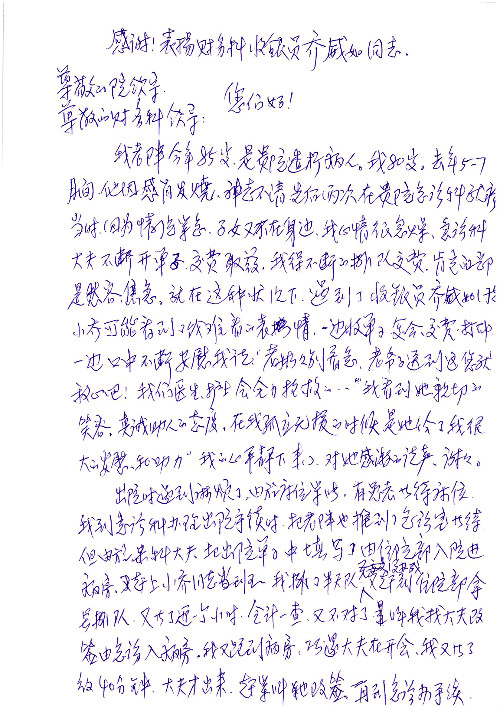 感谢!表扬财务科收银员乔威如同志.
尊敬的院领导.
您们好!
尊敬的财务科领导:
我老伴今年85岁.是贵院造析病人.我80岁.去年5-7
月间.他因感冒发烧.神志不清是先后两次在贵院急诊科就疹
当时.因为情况紧急.子女又不在身边.我心情很急燥.急诊科
大夫不断开单子.交费取药.我得不断的排队交费.肯定面部
是愁容焦急.就在这种状况下.遇到了收银员乔威如同
小乔可能看到了给难看的表情.一边收单子交会交费打
一边口中不断安慰我说:"老妈妈别着急.老爷子送到这您就
放心吧!我们医生护士会全力抢救的……"我看到她亲切的
笑容.真诚助人的态度.在我孤立无援的时候是她给了我很
大的安慰和助力"我的心平静下来了.对她感激的说声.谢谢.
出院时遇到麻烦了.由于床位紧张.有患者在待床位.
我到急诊科办理出院手续时.把老伴也推到了急诊室等待
但由于某科大夫把出院单子中填写了由住院部入院进
病房.又是上小乔同志看到了.我排了半天队 到住院部拿
号排队.又花了近1个小时.会计一查.又不对了.
签由急诊入病房.我又跑到病房.巧遇大夫在开会.我又花了
约40分钟.大夫才出来.定单叫她改签.再到急诊办手续.